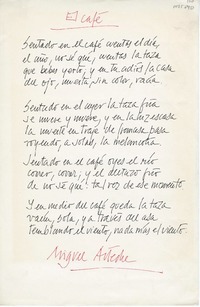 El café
Sentado en el café cuentas el día,
el año, no sé qué, cuentas la taza
que bebes yerto, y en tu adiós, la casa
del ojo, muerta, sin color, vacía.
Sentado en el ayer la taza fría
se mueve y mueve, y en la luz escasa
la muerte en traje de fantasma pasa
royendo, a solas, la melancolía.
Sentado en el café oyes el río
correr, correr, y el aletazo frío
de no sé qué: tal vez de ese momento
Y en medio del café queda la taza
vacía, sola, y a través del asa
temblando el viento, nada más, el viento.
Miguel Arteche